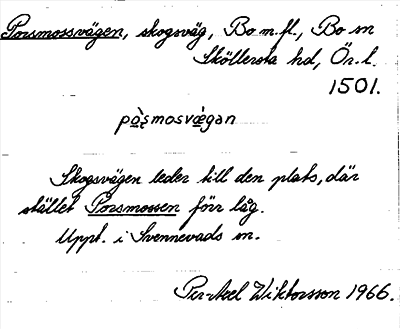 Porsmossvägen, skogsväg, Bo m.fl., Bo sn
Sköllersta hd, Ör. l.
1501.
pòʂmosvæ̀gan
Skogsvägen leder till den plats, där
stället Porsmossen förr låg.
Uppt. i Svennevads sn.
Per-Axel Wiktorsson 1966.